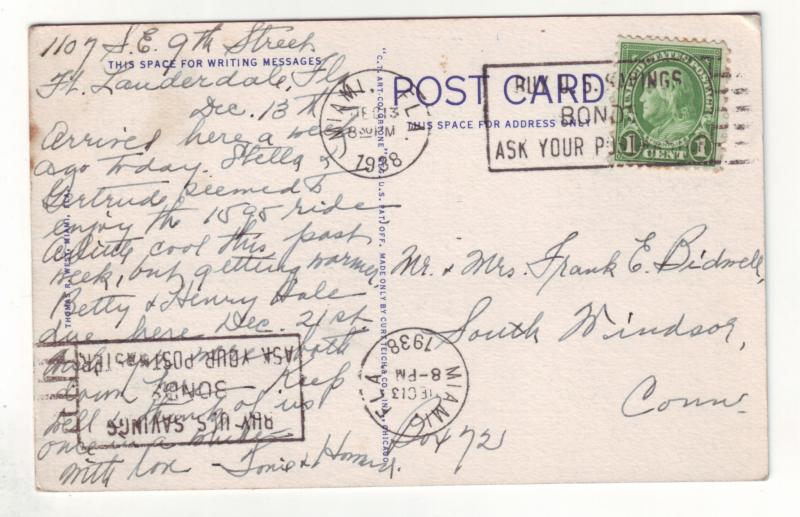 1107 S.E. 9th Street
THIS SPACE FOR WRITING MESSAGES
Ft. Lauderdale, Fla
Dec. 13th
Arrived here a week
ago today. Stella &
Gertrude seemed to
enjoy the 1595 ride
A little cool this past
week, but getting warmer,
Betty & Henry Hale
due here Dec. 21st
down Keep
well & think of us
once in a while
with love
THOMAS R. WEST, MIAMI, FLA.
"C.T. ART-COLORTONE" REG. U.S. PAT. OFF. MADE ONLY BY CURT TEICH & CO., INC., CHICAGO
POST CARD
THIS SPACE FOR ADDRESS ONLY
MIAMI, FLA.
DEC 13
8 PM
1938
BUY U.S. SAVINGS
BONDS
ASK YOUR PO
UNITED STATES POSTAGE
1 CENT 1
Mr. & Mrs. Frank E. Bidwell,
South Windsor,
Conn.
Box 72
MIAMI FLA
DEC 13
8-PM
1938
BUY U.S. SAVINGS
BONDS
ASK YOUR POSTMASTER